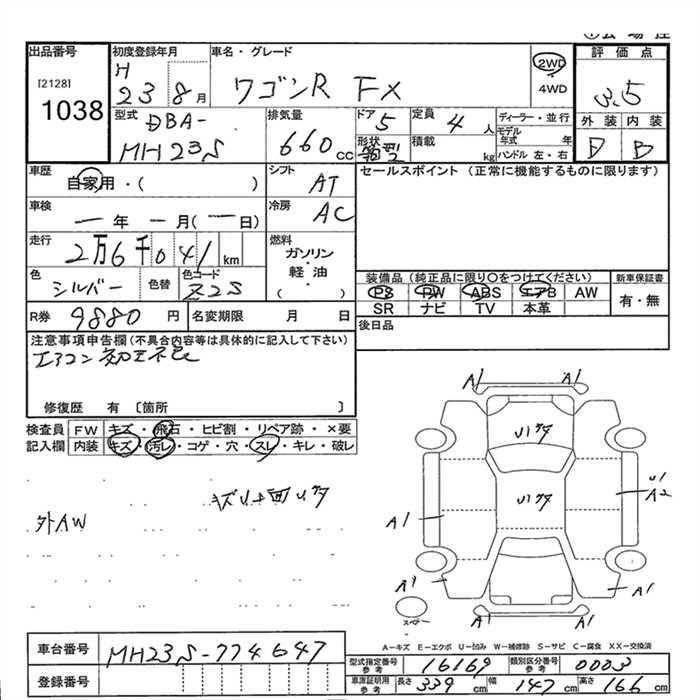 出品番号
[2128]
1038
初度登録年月
H
23 8月
車名・グレード
ワゴンR FX
2WD
4WD
評価点
3.5
外装 内装
B
型式
DBA-
MH23S
排気量
660 cc
ドア
5
形状
箱型
定員
4 人
積載
kg
ディーラー・並行
モデル
年式 年
ハンドル 左・右
車歴
自家用・( )
シフト
AT
セールスポイント(正常に機能するものに限ります)
車検
ー年 ー月(ー日)
冷房
AC
走行
2万6千041km
燃料
ガソリン
・
軽油
・
( )
色
シルバー
色替
色コード
Z2S
装備品(純正品に限り○をつけてください)
PS PW ABS エアB AW
SR ナビ TV 本革
新車保証書
有・無
R券 9880 円
名変期限 月 日
後日品
注意事項申告欄(不具合内容等は具体的に記入して下さい)
エアコン
修復歴 有 〔箇所 〕
検査員
記入欄
FW キズ・飛石・ヒビ割・リペア跡・×要
内装 キズ・汚レ・コゲ・穴・スレ・キレ・破レ
外AW
A1 A1
A1
U1
A2
A1 A1
A1 A1
スペアー
A−キズ E−エクボ U−凹み W−補修跡 S−サビ C−腐食 XX−交換済
車台番号
MH23S-774647
登録番号
型式指定番号
参考
16169
類別区分番号
参考
0003
車庫証明用
参考
長さ 339 cm 幅 147 cm 高さ 166 cm